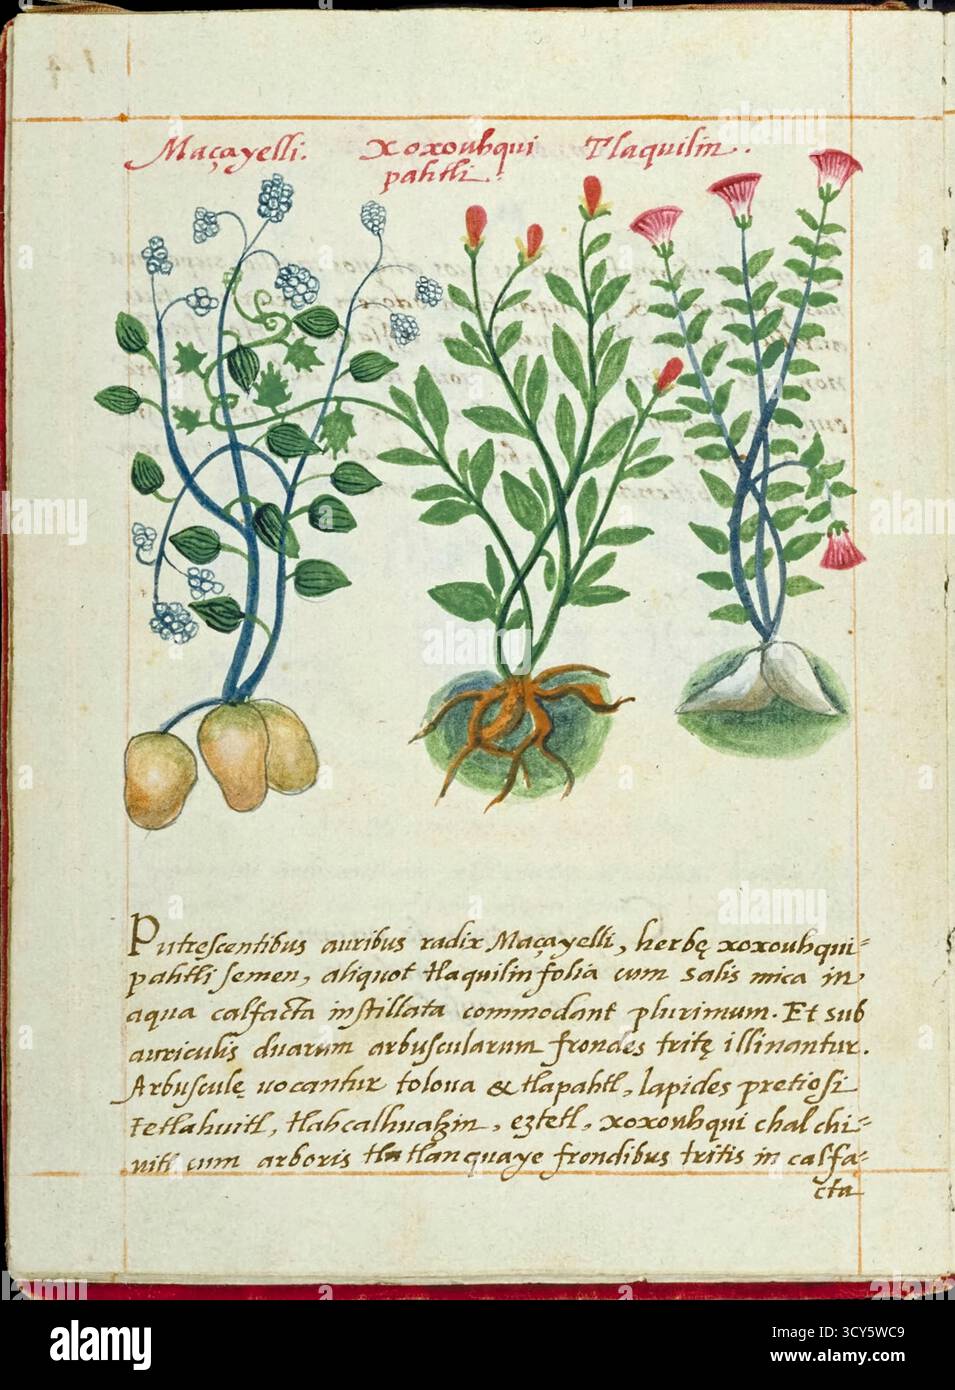 Maçayelli. xoxouhqui Tlaquilin.
pahtli.
Putrescentibus auribus radix Maçayelli, herbę xoxouhqui=
pahtli semen, aliquot tlaquilin folia cum salis mica in
aqua calfacta instillata commodant plurimum. Et sub
auriculis duarum arbuscularum frondes tritę illinantur.
Arbusculę uocantur tolova & tlapahtl, lapides pretiosi
tetlahuitl, tlahcalhuatzin, eztetl, xoxouhqui chalchi=
uitl cum arboris tlatlanquaye frondibus tritis in calfa=
cta
alamy
Image ID: 3CY5WC9
www.alamy.com